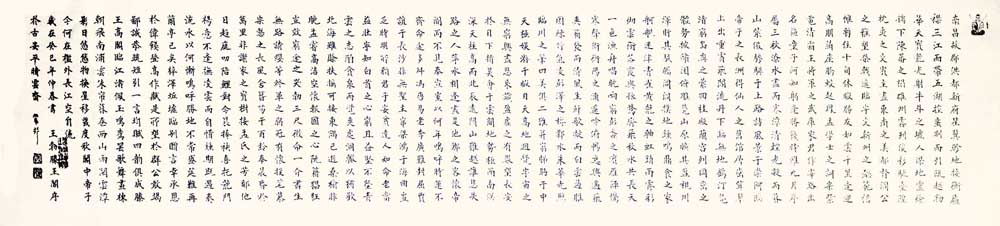 南昌故郡洪都新府星分翼軫地接衡廬
襟三江而帶五湖控蠻荊而引甌越物
華天寶龍光射牛斗之墟人傑地靈徐
孺下陳蕃之榻雄州霧列俊彩星馳臺隍
枕夷夏之交賓主盡東南之美都督閻公
之雅望棨戟遙臨宇文新州之懿範襜
帷暫駐十旬休暇勝友如雲千里逢迎
高朋滿座騰蛟起鳳孟學士之詞宗紫
電清霜王將軍之武庫家君作宰路出
名區童子何知躬逢勝餞時維九月序
屬三秋潦水盡而寒潭清煙光凝而暮
山紫儼驂騑于上路訪風景于崇阿臨
帝子之長洲得仙人之舊館層巒聳翠
上出重霄飛閣流丹下臨無地鶴汀鳧
渚窮島嶼之縈迴桂殿蘭宮列岡巒之
體勢披繡闥俯雕甍山原曠其盈視川
澤盱其駭矚閭閻撲地鐘鳴鼎食之家
舸艦迷津青雀黃龍之軸虹銷雨霽彩
徹雲衢落霞與孤鶩齊飛秋水共長天
一色漁舟唱晚響窮彭蠡之濱雁陣驚
寒聲斷衡陽之浦遙吟俯暢逸興遄飛
爽籟發而清風生纖歌凝而白雲遏睢
園綠竹氣凌彭澤之樽鄴水朱華光照
臨川之筆四美具二難并窮睇眄于中
天極娛遊于暇日天高地迥覺宇宙之
無窮興盡悲來識盈虛之有數望長安
於日下指吳會于雲間地勢極而南溟
深天柱高而北辰遠關山難越誰悲失
路之人萍水相逢盡是他鄉之客懷帝
閽而不見奉宣室以何年嗚呼時運不
齊命途多舛馮唐易老李廣難封屈賈
誼于長沙非無聖主竄梁鴻于海曲豈
乏明時所賴君子安貧達人知命老當
益壯寧知白首之心窮且益堅不墜青
雲之志酌貪泉而覺爽處涸轍以猶歡
北海雖賒扶搖可接東隅已逝桑榆非
晚孟嘗高潔空懷報國之心阮籍猖狂
豈效窮途之哭勃三尺微命一介書生
無路請纓等終軍之弱冠有懷投筆慕
宗愨之長風舍簪笏于百齡奉晨昏于
萬里非謝家之寶樹接孟氏之芳鄰他
日趨庭叨陪鯉對今晨捧袂喜托龍門
楊意不逢撫凌雲而自惜鍾期既遇奏
流水以何慚嗚呼勝地不常盛筵難再
蘭亭已矣梓澤丘墟臨別贈言幸承恩
於偉餞登高作賦是所望於群公敢竭
鄙誠恭疏短引一言均賦四韻俱成滕
王高閣臨江渚佩玉鳴鸞罷歌舞畫棟
朝飛南浦雲朱簾暮捲西山雨閒雲潭
影日悠悠物換星移幾度秋閣中帝子
今何在檻外長江空自流
歲在癸巳年仲春書 王勃滕王閣序
於古安平晴雲齋